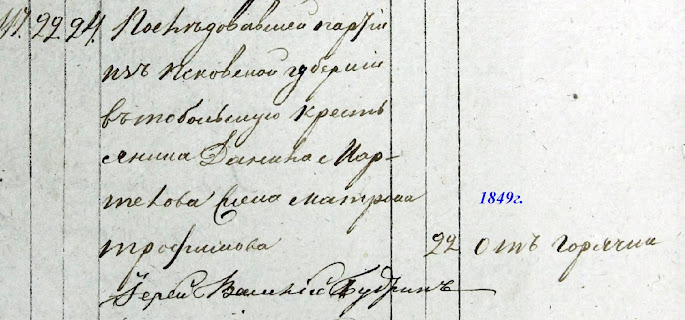 117. 22 24. Послѣдовавшей партіи
изъ Псковской губерніи
въ тобольскую кресть
янина Данила Мар-
текова жена матрона
1849г.
трофимова 22 отъ горячки
Іерей Василій Будринъ